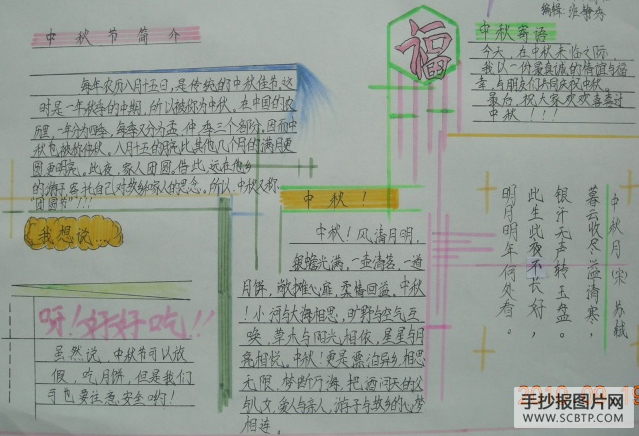 编辑:
中秋节简介
每年农历八月十五日,是传统的中秋佳节。这
时是一年秋季的中期,所以被称为中秋。在中国的农
历里,一年分为四季,每季又分为孟、仲、季三个部分,因而中
秋也被称仲秋。八月十五的月亮比其他几个月的满月更
圆更明亮,此夜,家人团圆。借此,远在他乡
的游子,寄托自己对故乡亲人的思念。所以,中秋又称
团圆节"!!!
福
中秋寄语
今天,在中秋来临之际,
我以一份最真诚的情谊与福
,与朋友们共同庆祝中秋。
最后,祝大家欢欢喜喜过
中秋!!!
我想说...
呀!好好吃!!
虽然说,中秋节可以放
假,吃月饼,但是我们
可也要注意安全哟!
中秋!
中秋!风清月明,
银蟾光满,一壶清茶,一道
月饼,敞摊心扉,柔情回溢。中秋
!小河与大海相思,旷野与空气互
唤,草木与阳光相依,星星与月
亮相悦。中秋!更是漂泊异乡相思
无限,梦断万海,把酒问天的父
与儿女,爱人与亲人,游子与故乡的心梦
相连。
中秋月(宋)苏轼
暮云收尽溢清寒,
银汉无声转玉盘。
此生此夜不长好,
明月明年何处看。
手抄报图片网
WWW.SCBTP.COM